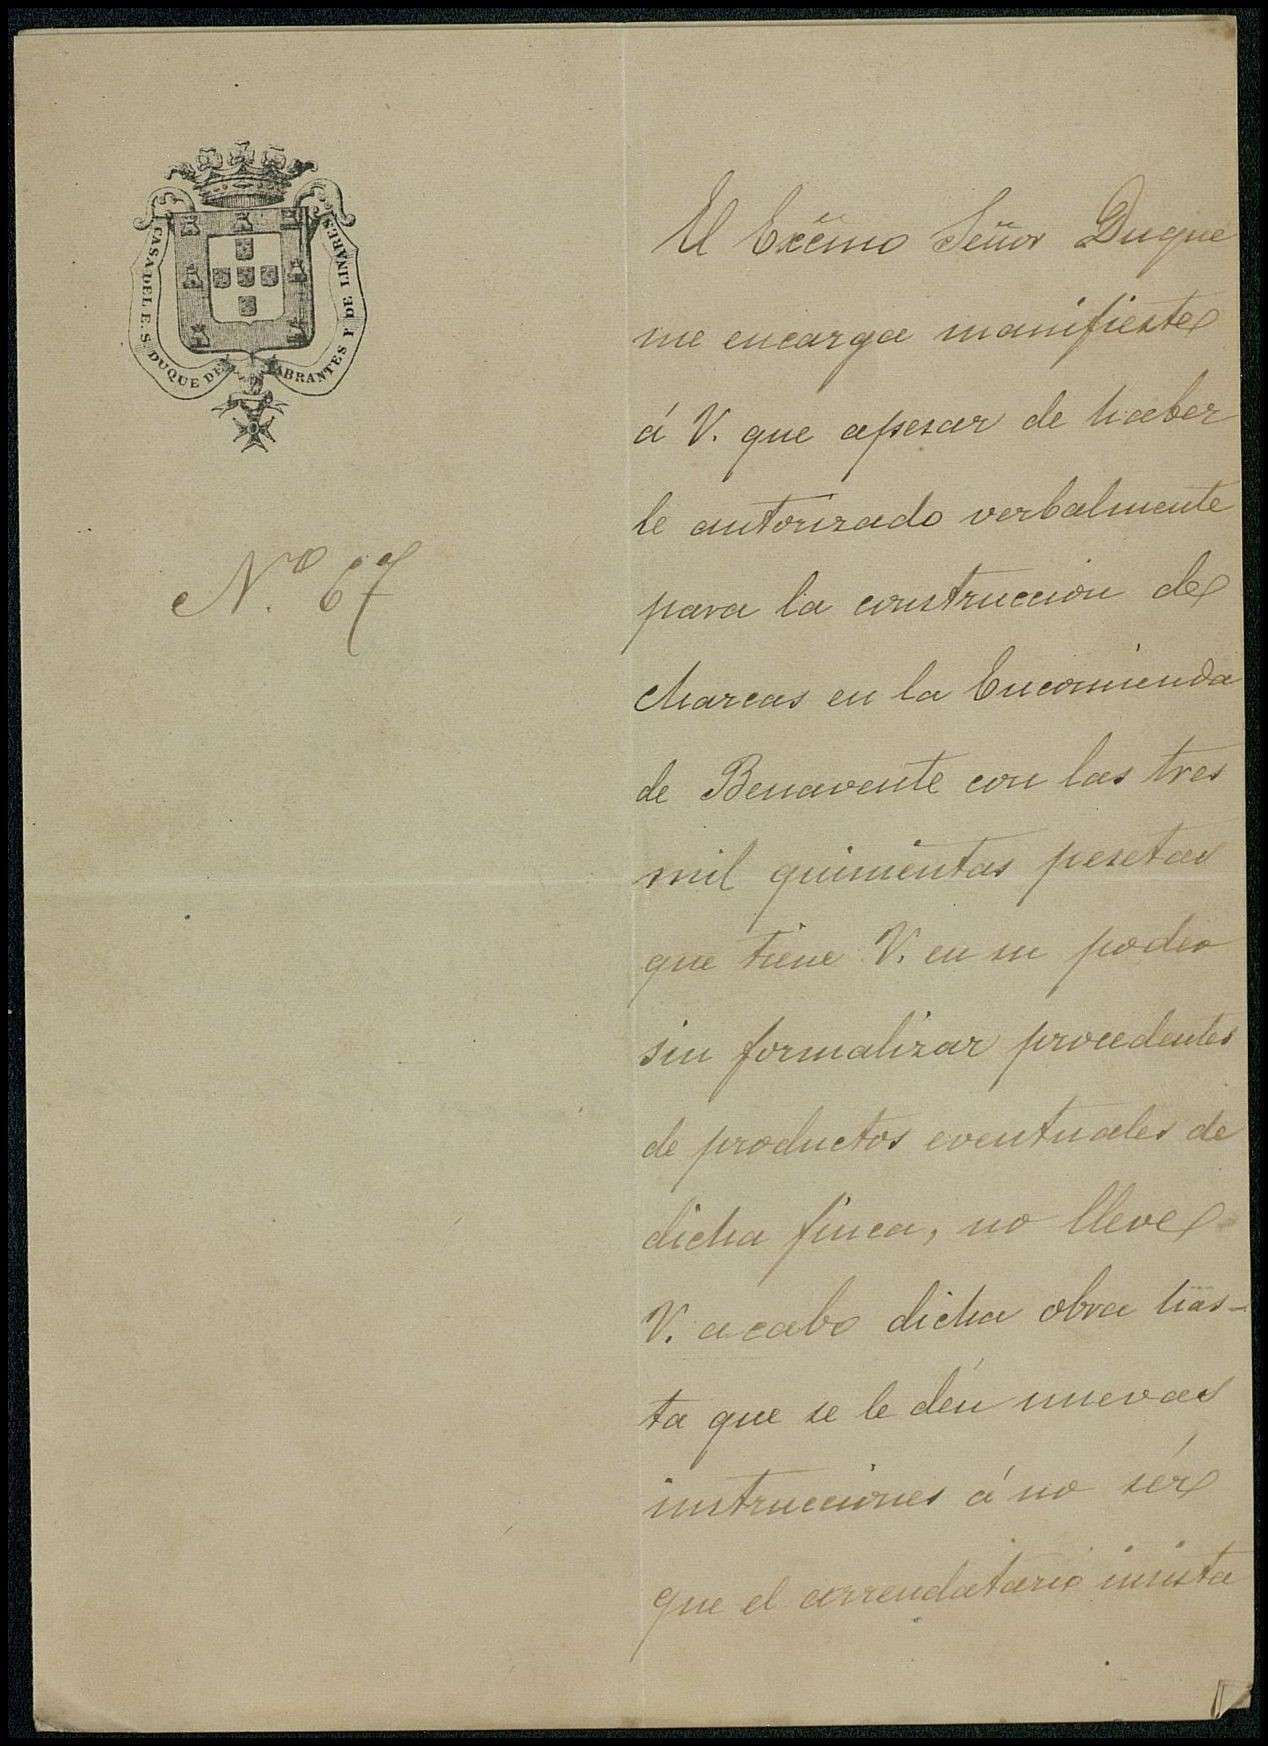 CASA DEL E. S. DUQUE DE ABRANTES Y DE LINARES
N.º 67
El Excmo Señor Duque
me encarga manifieste
á V. que apesar de haber
le autorizado verbalmente
para la construccion de
charcas en la Encomienda
de Benavente con las tres
mil quinientas pesetas
que tiene V. en su poder
sin formalizar procedentes
de productos eventuales de
dicha finca, no lleve
V. acabo dicha obra has-
ta que se le dén nuevas
instrucciones á no sér
que el arrendatario insista